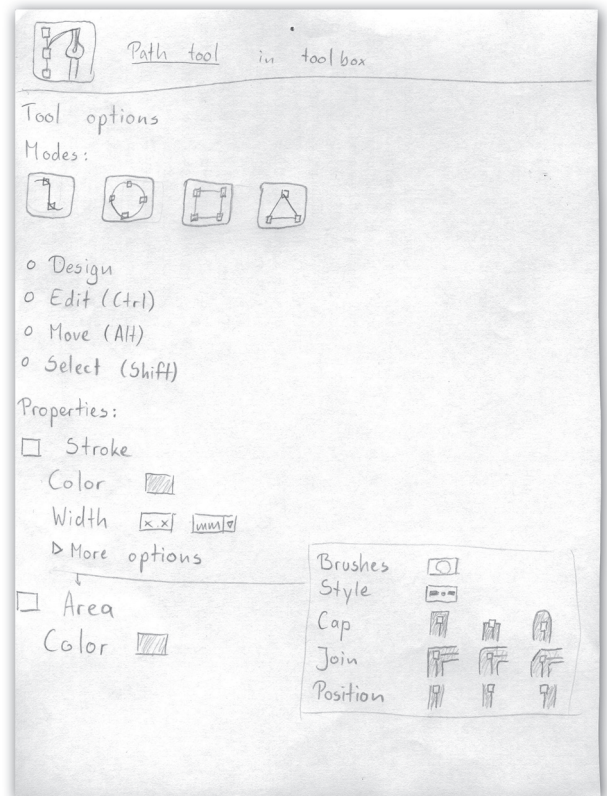 Path tool in toolbox
Tool options
Modes:
Design
Edit (Ctrl)
Move (Alt)
Select (Shift)
Properties:
Stroke
Color
Width x.x mm
More options
Area
Color
Brushes
Style
Cap
Join
Position